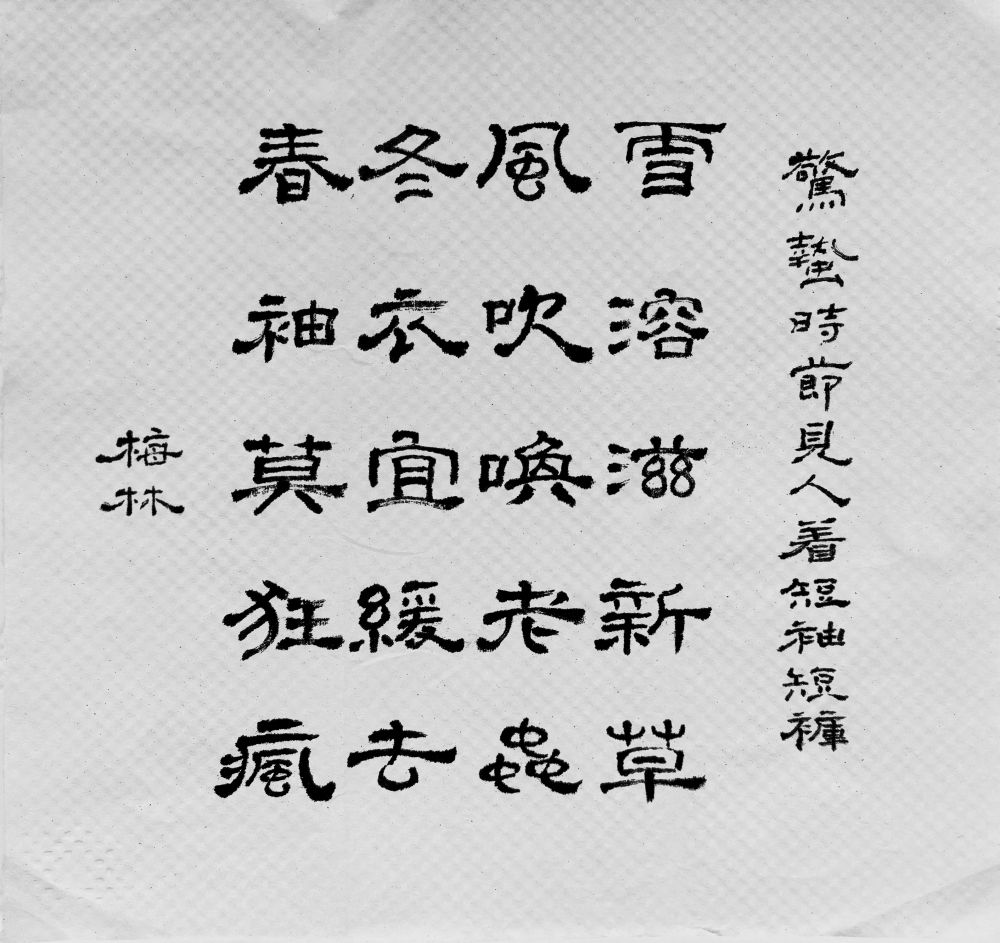 驚蟄時節見人着短袖短褲
雪溶滋新草
風吹喚老蟲
冬衣宜緩去
春袖莫狂瘋
梅林